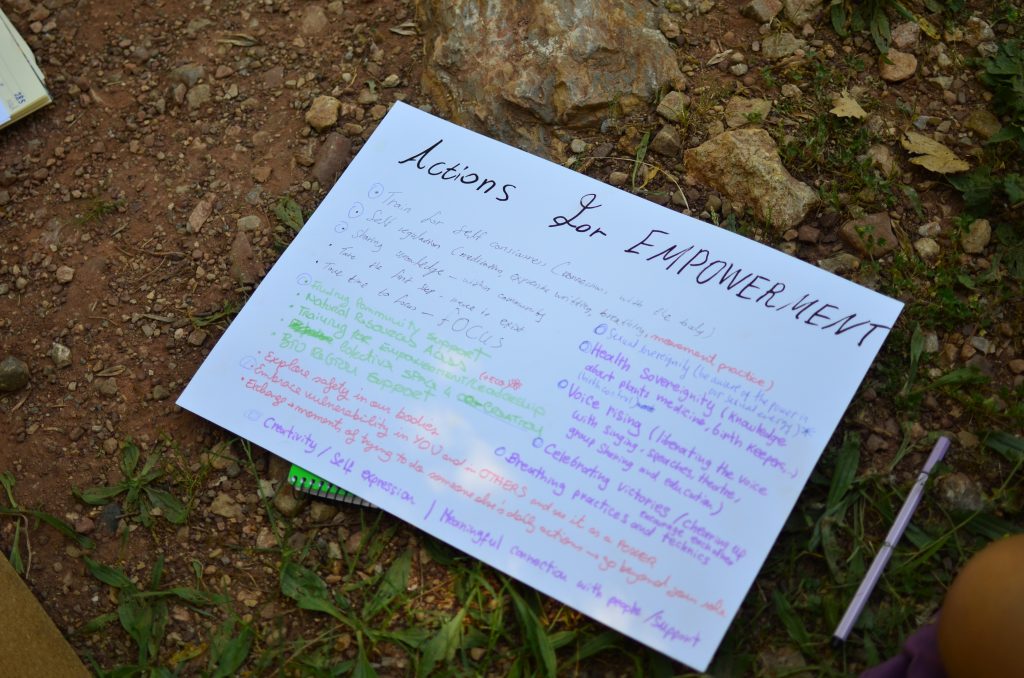 Actions for EMPOWERMENT
Train for self consciusness (connexion with the body)
Self regulation (meditation, exposite writting, breathing, movement practice)
Sharing knowledge - within community
Take the first step - move to exist
Take time to focus - FOCUS
Finding Community Support
Natural Resources Access
Training for Empowerment/Leadership (+eco)
Collective space & co-creation
Bio Region Support
Explore safety in our bodies
Embrace vulnerability in YOU and in OTHERS and use it as a POWER
Exchange moments of trying to do someone else's daily actions → go beyond your role
Creativity / Self expression / Meaningful connection with people / Support
Sexual Sovereignity (be aware of the power in our sexual energy)
Health Sovereignity (knowledge
about plants medicine, birth keepers...)
Voice rising (literating the voice
with singing, speaches, theatre,
group sharing and education)
Celebrating victories / cheering up
encourage eachother
Breathing practices and technics
285